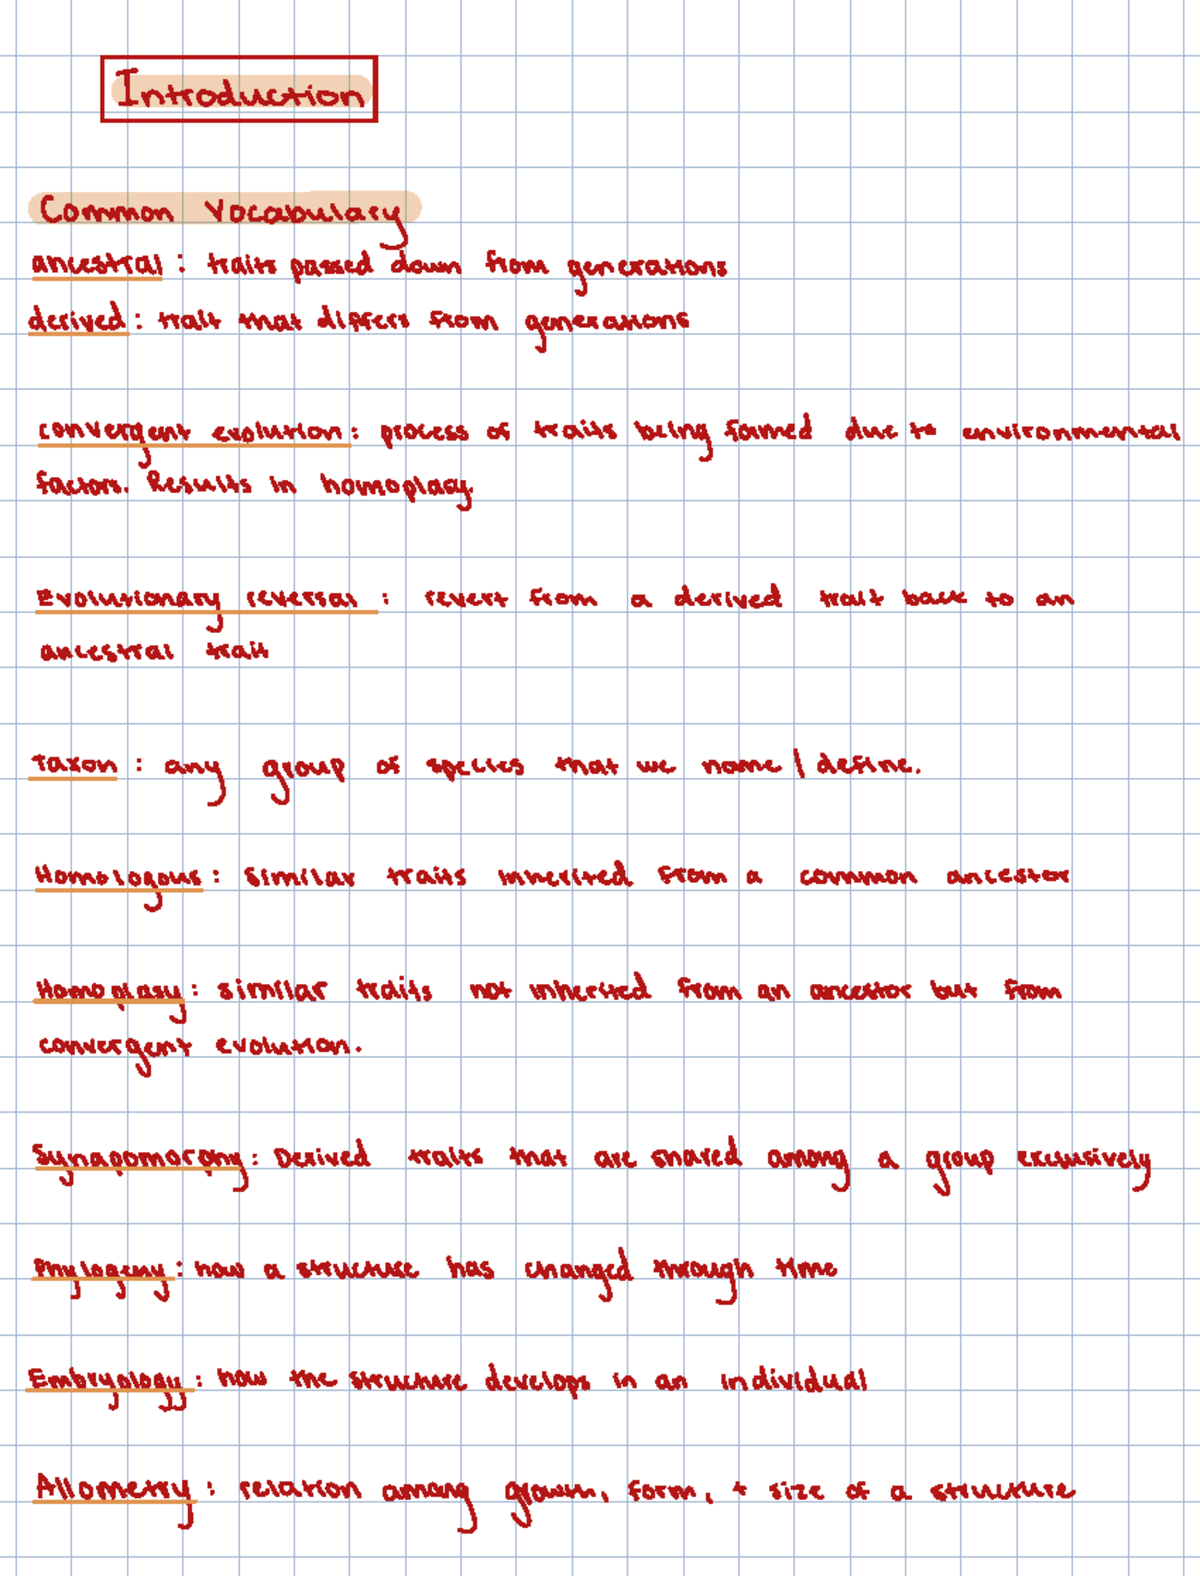 Introduction
Common Vocabulary
ancestral : traits passed down from generations
derived : trait that differs from generations
convergent evolution : process of traits being formed due to environmental
factors. Results in homoplasy.
Evolutionary reversal : revert from a derived trait back to an
ancestral trait
Taxon : any group of species that we name \ define.
Homologous : similar traits inherited from a common ancestor
Homoplasy : similar traits not inherited from an ancestor but from
convergent evolution.
Synapomorphy : Derived traits that are shared among a group exclusively
Phylogeny : how a structure has changed through time
Embryology : how the structure develops in an individual
Allometry : relation among growth, form, + size of a structure